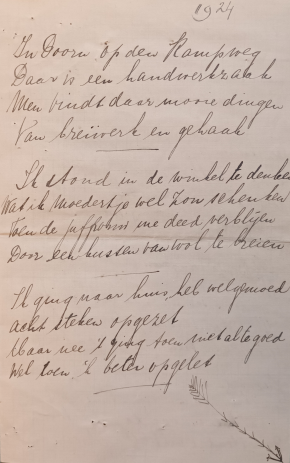 1924
In Doorn op den Kampweg
Daar is een handwerkzaak
Men vindt daar mooie dingen
Van breiwerk en gehaak
Ik stond in de winkel te denken
Wat ik Moedertje wel zou schenken
Toen de juffrouw me deed verblijen
Door een kussen van wol te breien
Ik ging naar huis, hel welgemoed
Acht steken opgezet
Maar nee 't ging toen niet al te goed
Wel toen 'k beter opgelet